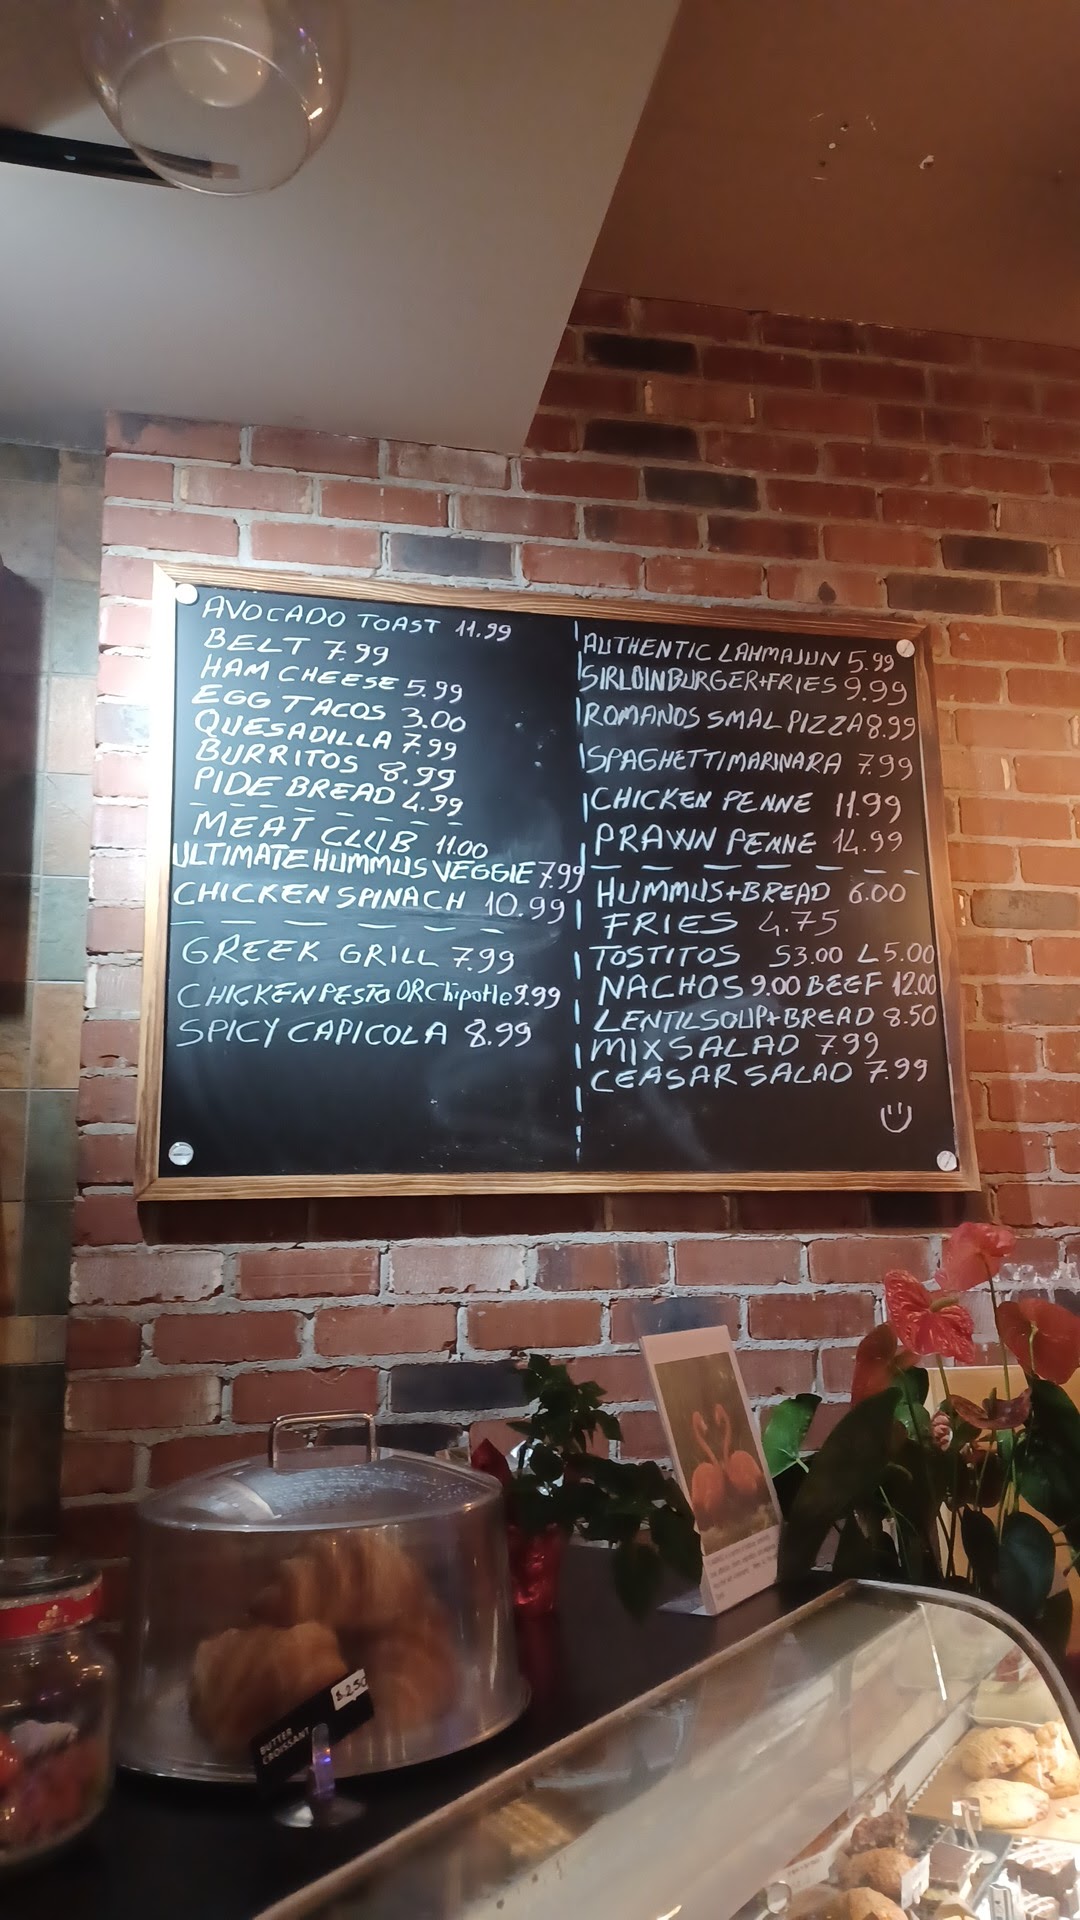 AVOCADO TOAST 11.99
BELT 7.99
HAM CHEESE 5.99
EGG TACOS 3.00
QUESADILLA 7.99
BURRITOS 8.99
PIDE BREAD 4.99
MEAT CLUB 11.00
ULTIMATE HUMMUS VEGGIE 7.99
CHICKEN SPINACH 10.99
GREEK GRILL 7.99
CHICKEN PESTO OR Chipotle 9.99
SPICY CAPICOLA 8.99
AUTHENTIC LAHMAJUN 5.99
SIRLOIN BURGER+FRIES 9.99
ROMANOS SMAL PIZZA 8.99
SPAGHETTI MARINARA 7.99
CHICKEN PENNE 11.99
PRAWN PENNE 14.99
HUMMUS+BREAD 6.00
FRIES 4.75
TOSTITOS S3.00 L5.00
NACHOS 9.00 BEEF 12.00
LENTIL SOUP+BREAD 8.50
MIX SALAD 7.99
CEASAR SALAD 7.99
$2.50
BUTTER
CROISSANT